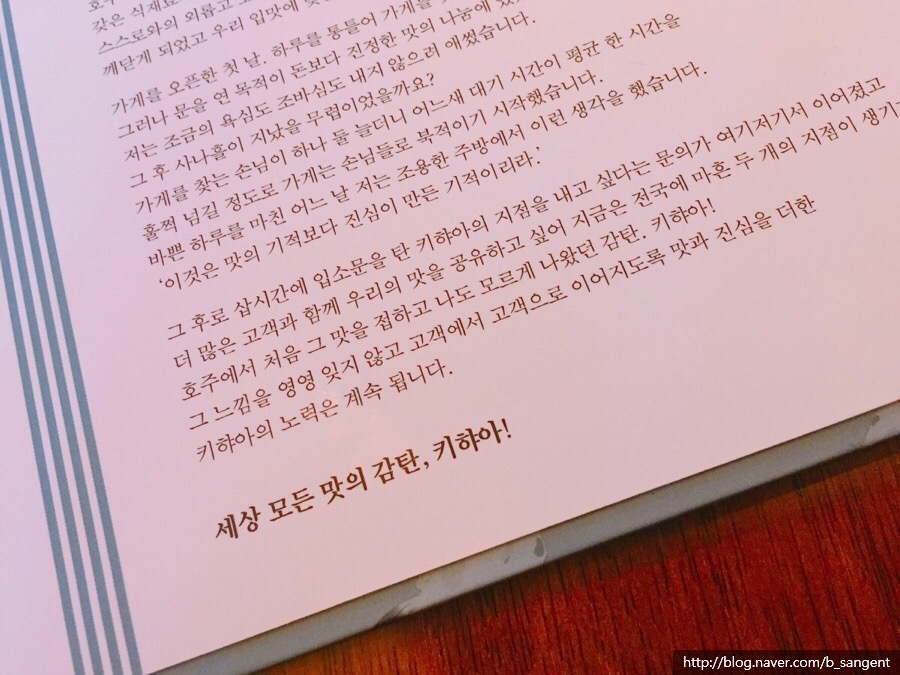 호주
갖은 식재료
스스로와의 외롭고
깨닫게 되었고 우리 입맛에
가게를 오픈한 첫 날. 하루를 통틀어 가게를
그러나 문을 연 목적이 돈보다 진정한 맛의 나눔에
저는 조금의 욕심도 조바심도 내지 않으려 애썼습니다.
그 후 사나흘이 지났을 무렵이었을까요?
가게를 찾는 손님이 하나 둘 늘더니 어느새 대기 시간이 평균 한 시간을
훌쩍 넘길 정도로 가게는 손님들로 북적이기 시작했습니다.
바쁜 하루를 마친 어느 날 저는 조용한 주방에서 이런 생각을 했습니다.
'이것은 맛의 기적보다 진심이 만든 기적이리라.'
그 후로 삽시간에 입소문을 탄 키햐아의 지점을 내고 싶다는 문의가 여기저기서 이어졌고
더 많은 고객과 함께 우리의 맛을 공유하고 싶어 지금은 전국에 마흔 두 개의 지점이 생기
호주에서 처음 그 맛을 접하고 나도 모르게 나왔던 감탄. 키햐아!
그 느낌을 영영 잊지 않고 고객에서 고객으로 이어지도록 맛과 진심을 더한
키햐아의 노력은 계속 됩니다.
세상 모든 맛의 감탄, 키햐아!
http://blog.naver.com/b_sangent